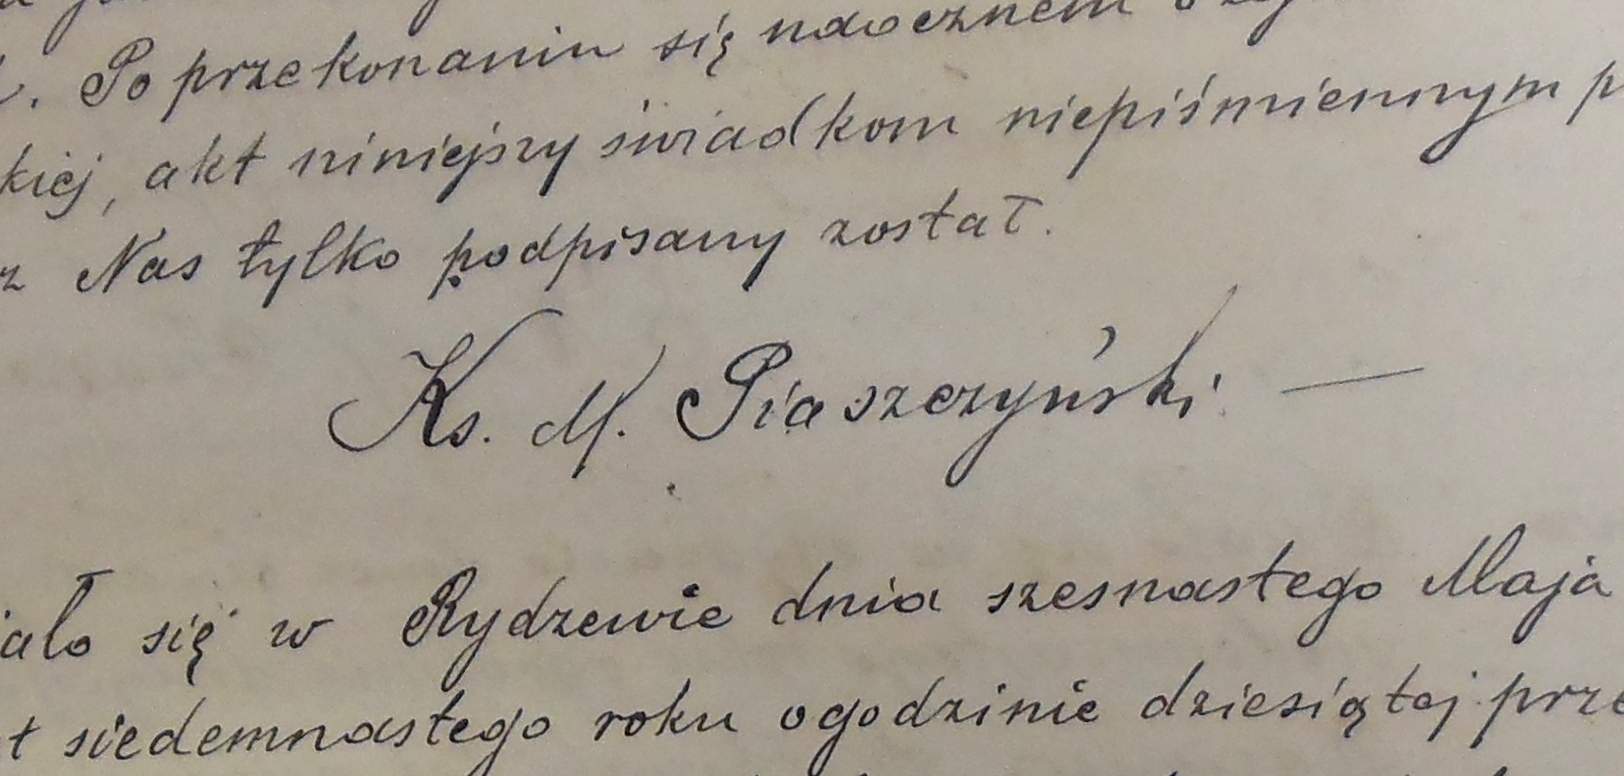 . Po przekonaniu się naocznem o
kiej, akt niniejszy świadkom niepiśmiennym p
z Nas tylko podpisany został.
Ks. M. Piaszczyński —
iało się w Rydzewie dnia szesnastego Maja
t siedemnastego roku ogodzinie dziesiątej prze